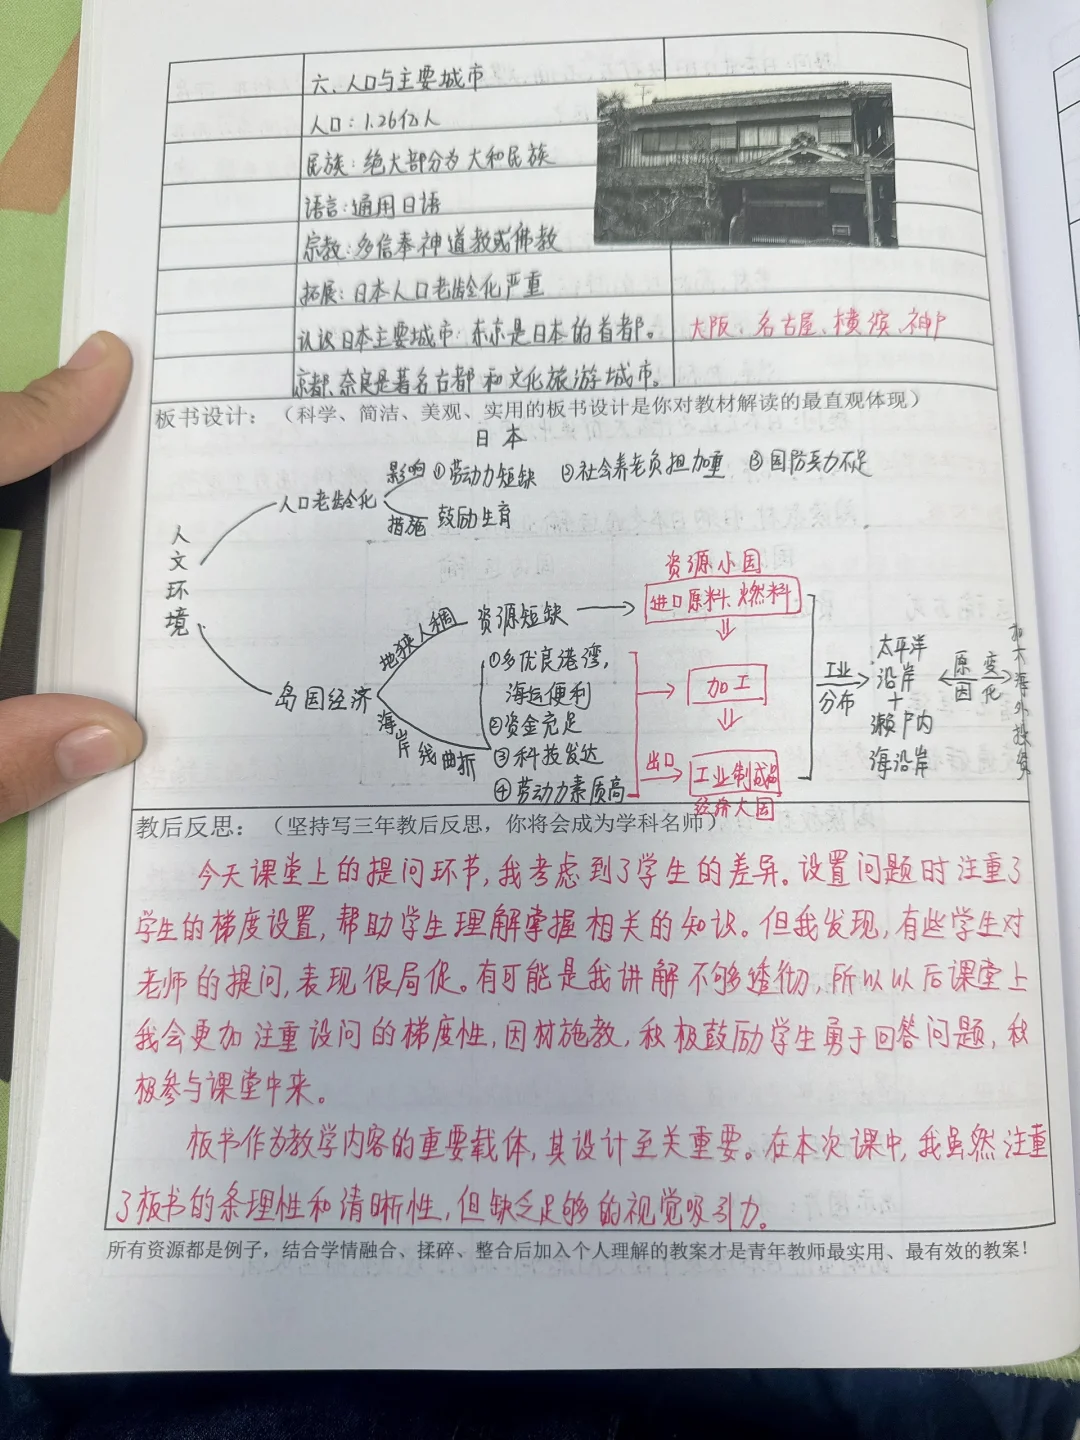 六、人口与主要城市
人口：1.26亿人
民族：绝大部分为大和民族
语言：通用日语
宗教：多信奉神道教或佛教
拓展：日本人口老龄化严重
认识日本主要城市：东京是日本的首都。
大阪、名古屋、横滨、神户
京都、奈良是著名古都和文化旅游城市。
板书设计：（科学、简洁、美观、实用的板书设计是你对教材解读的最直观体现）
日本
人文环境
人口老龄化
影响 ①劳动力短缺 ②社会养老负担加重 ③国防兵力不足
措施 鼓励生育
岛国经济
地狭人稠
资源短缺
海岸线曲折
①多优良港湾，
海运便利
②资金充足
③科技发达
④劳动力素质高
资源小国
进口原料、燃料
加工
出口
工业制成品
经济大国
工业
分布
太平洋
沿岸
+
濑户内
海沿岸
原因
变化
扩大海外投资
教后反思：（坚持写三年教后反思，你将会成为学科名师）
今天课堂上的提问环节，我考虑到了学生的差异。设置问题时注重了
学生的梯度设置，帮助学生理解掌握相关的知识。但我发现，有些学生对
老师的提问，表现很局促。有可能是我讲解不够透彻，所以以后课堂上
我会更加注重设问的梯度性，因材施教，积极鼓励学生勇于回答问题，积
极参与课堂中来。
板书作为教学内容的重要载体，其设计至关重要。在本次课中，我虽然注重
了板书的条理性和清晰性，但缺乏足够的视觉吸引力。
所有资源都是例子，结合学情融合、揉碎、整合后加入个人理解的教案才是青年教师最实用、最有效的教案！